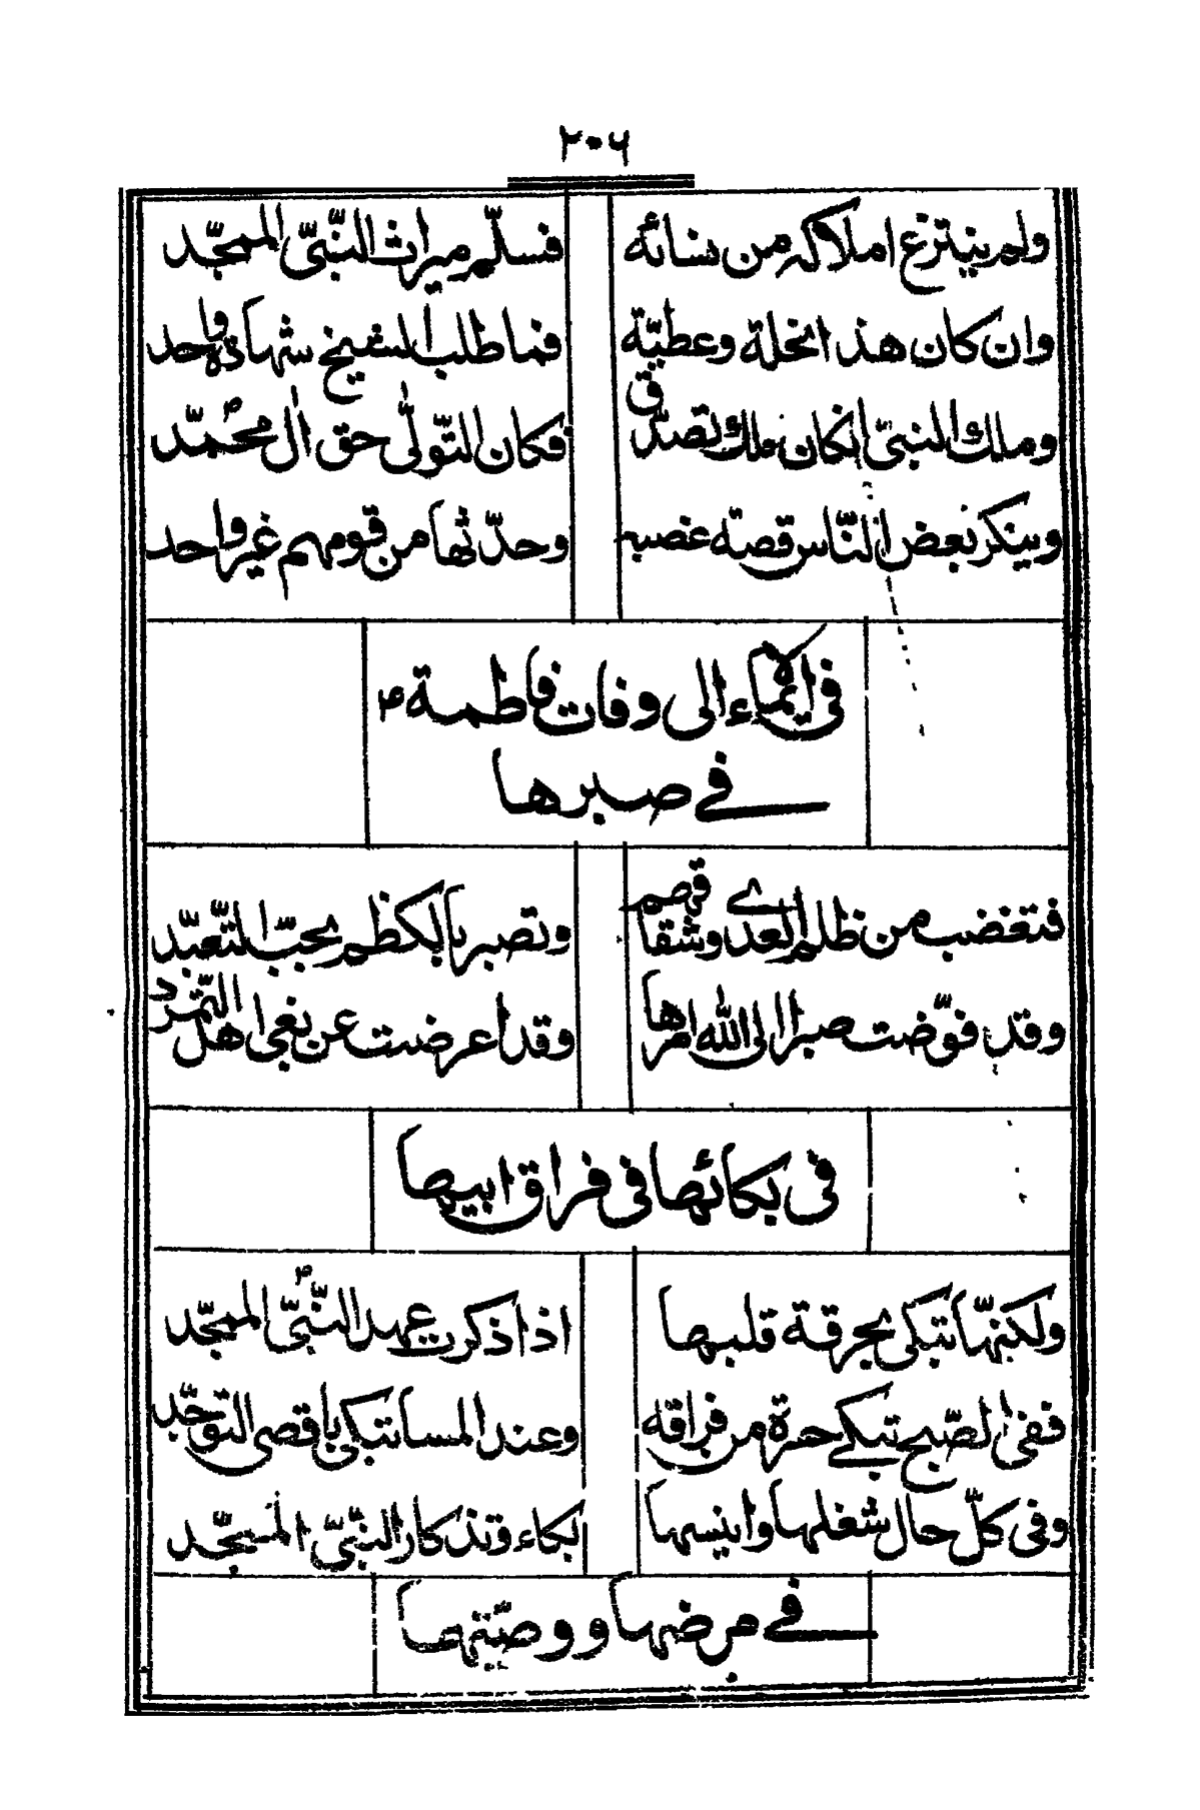 ٢٠٦
ولم ينتزع املاكه من نسائه فسلّم ميراث النّبىّ الممجّد
وان كان هذا نحلة وعطيّة فما طلب السفيخ شهادة واحد
وملك النبىّ انكان ملك تصدّق فكان التّولّى حق ال محمّد
وينكر بعض النّاس قصته غصبه وحدّثها من قومهم غير واحد
فى الايماء الى وفات فاطمة ع
فے صبرها
فتغضب من ظلم العدے وشقاقهم وتصبر بالكظم بحبّ التّعبّد
وقد فوّضت صبرا الى الله امرها وقد اعرضت عن بغى اهل التّمرد
فى بكائها فى فراق ابيها
ولكنّها تبكى بحرقة قلبها اذا ذكرت عهد النّبىّ الممجّد
ففى الصّبح تبكے حسرة من فراقه وعند المسا تبكى باقصى التوجّد
وفى كلّ حال شغلها وانيسها بكاء وتذكار النّبىّ المسجّد
فے مرضها ووصيّتها